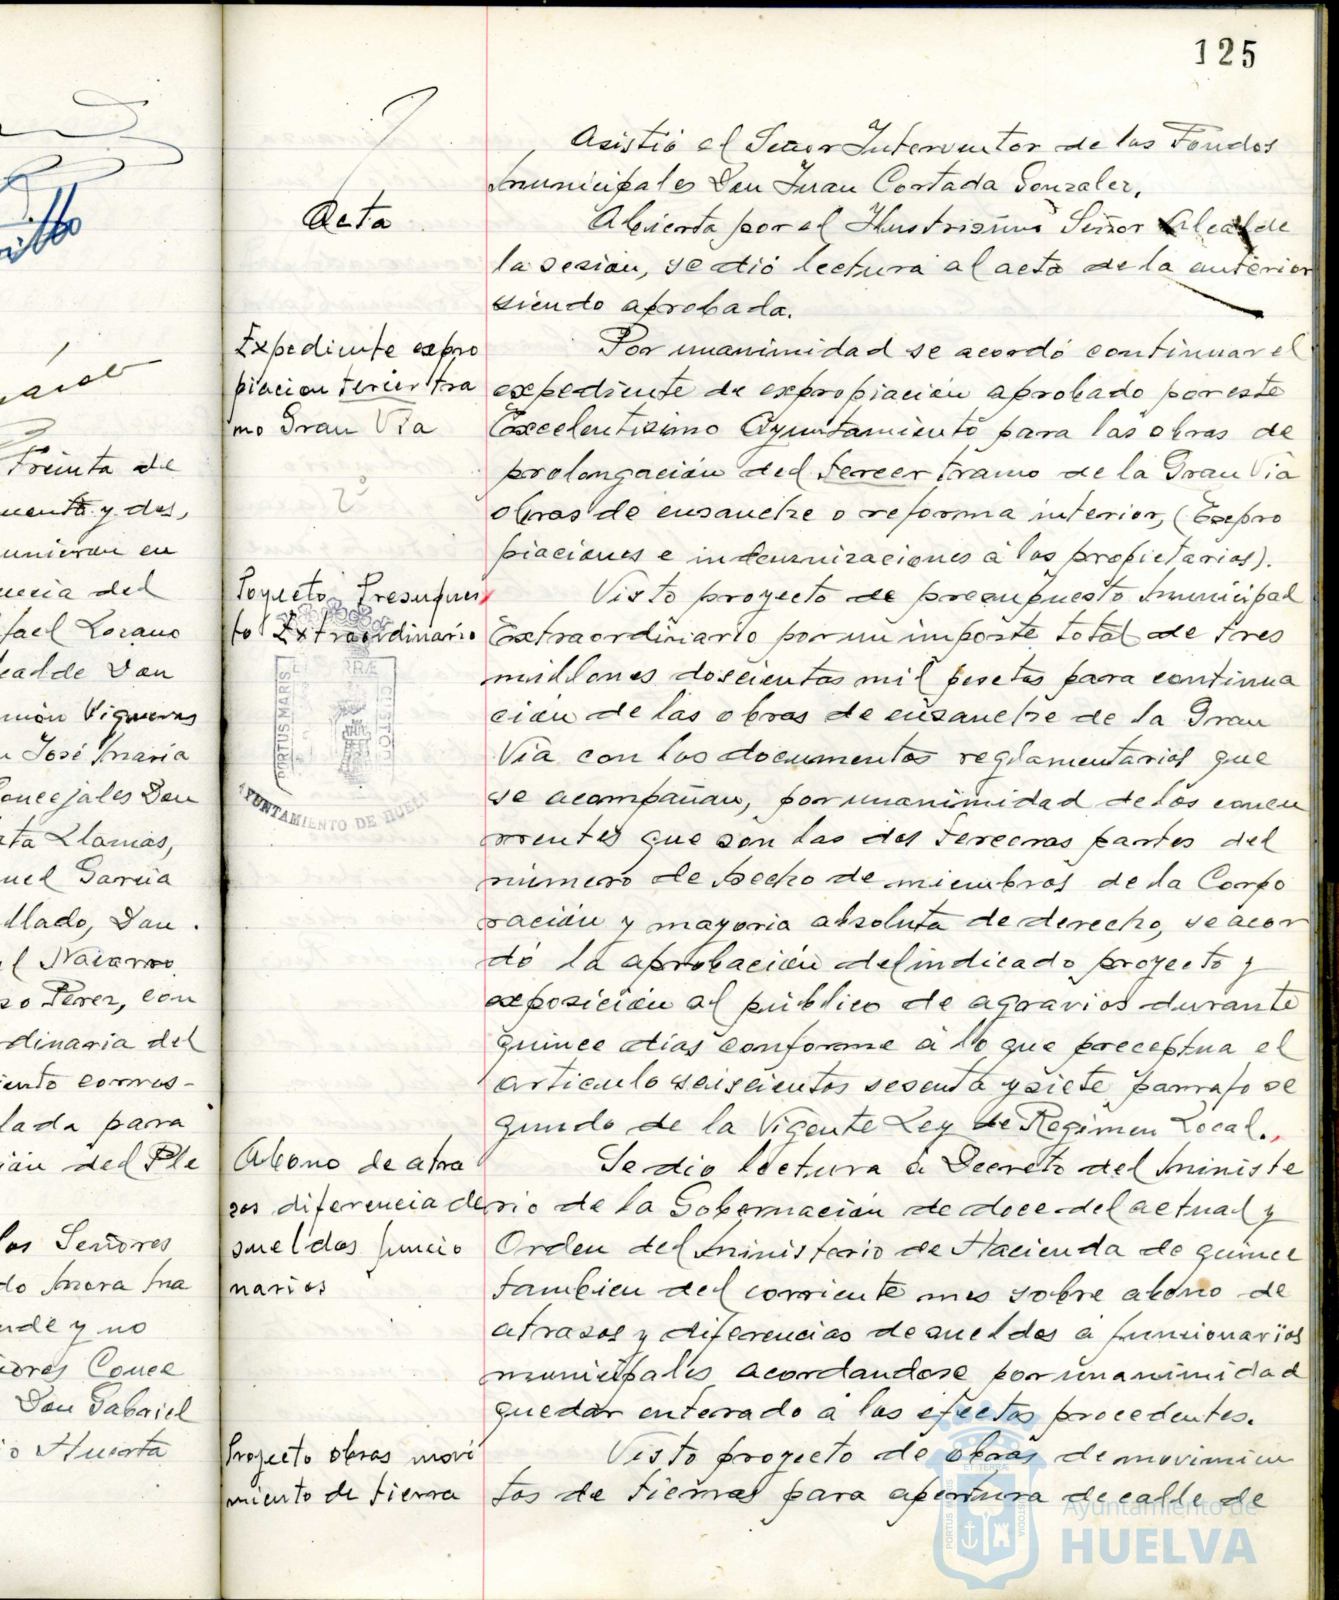 125
Treinta de
cuenta y dos,
unieron en
dencia del
fael Lozano
calde Don
món Vigueras
n José Maria
Concejales Don
ata Llamas,
nuel Garcia
llado, Don
el Navarro
zo Perez, con
rdinaria del
iento corres-
lada para
ión del Ple
los Señores
do Mora Ma
nde y no
ñores Conce
Don Gabriel
io Huerta
Acta
Expediente expro
piacion tercer tra
mo Gran Via
2º
Poyecto Presupues
to Extraordinario
PORTUS MARIS
ET TERRÆ
CUSTODIA
AYUNTAMIENTO DE HUELVA
Abono de atra
sos diferencia de
sueldos funcio
narios
Proyecto obras movi
miento de tierra
Asistió el Señor Interventor de los Fondos
Municipales Don Juan Cortada Gonzalez.
Abierta por el Ilustrisimo Señor Alcalde
la sesion, se dió lectura al acta de la anterior
siendo aprobada.
Por unanimidad se acordó continuar el
expediente de expropiación aprobado por este
Excelentisimo Ayuntamiento para las obras de
prolongación del tercer tramo de la Gran Via
obras de ensanche o reforma interior, (Expro
piaciones e indemnizaciones á los propietarios).
Visto proyecto de presupuesto Municipal
Extraordinario por un importe total de tres
millones doscientas mil pesetas para continua
ción de las obras de ensanche de la Gran
Via con los documentos reglamentarios que
se acompañan, por unanimidad de los concu
rrentes que son las dos terceras partes del
número de hecho de miembros de la Corpo
ración y mayoria absoluta de derecho, se acor
dó la aprobación del indicado proyecto y
exposición al público de agravios durante
quince dias conforme á lo que preceptua el
articulo seiscientos sesenta y siete parrafo se
gundo de la Vigente Ley de Regimen Local.
Se dio lectura á Decreto del Ministe
rio de la Gobernación de doce del actual y
Orden del Ministerio de Hacienda de quince
tambien del corriente mes sobre abono de
atrasos y diferencias de sueldos á funcionarios
municipales acordandose por unanimidad
quedar enterado á los efectos procedentes.
Visto proyecto de obras de movimien
tos de tierras para apertura de calle de
PORTUS MARIS
ET TERRÆ
CUSTODIA
Ayuntamiento de
HUELVA